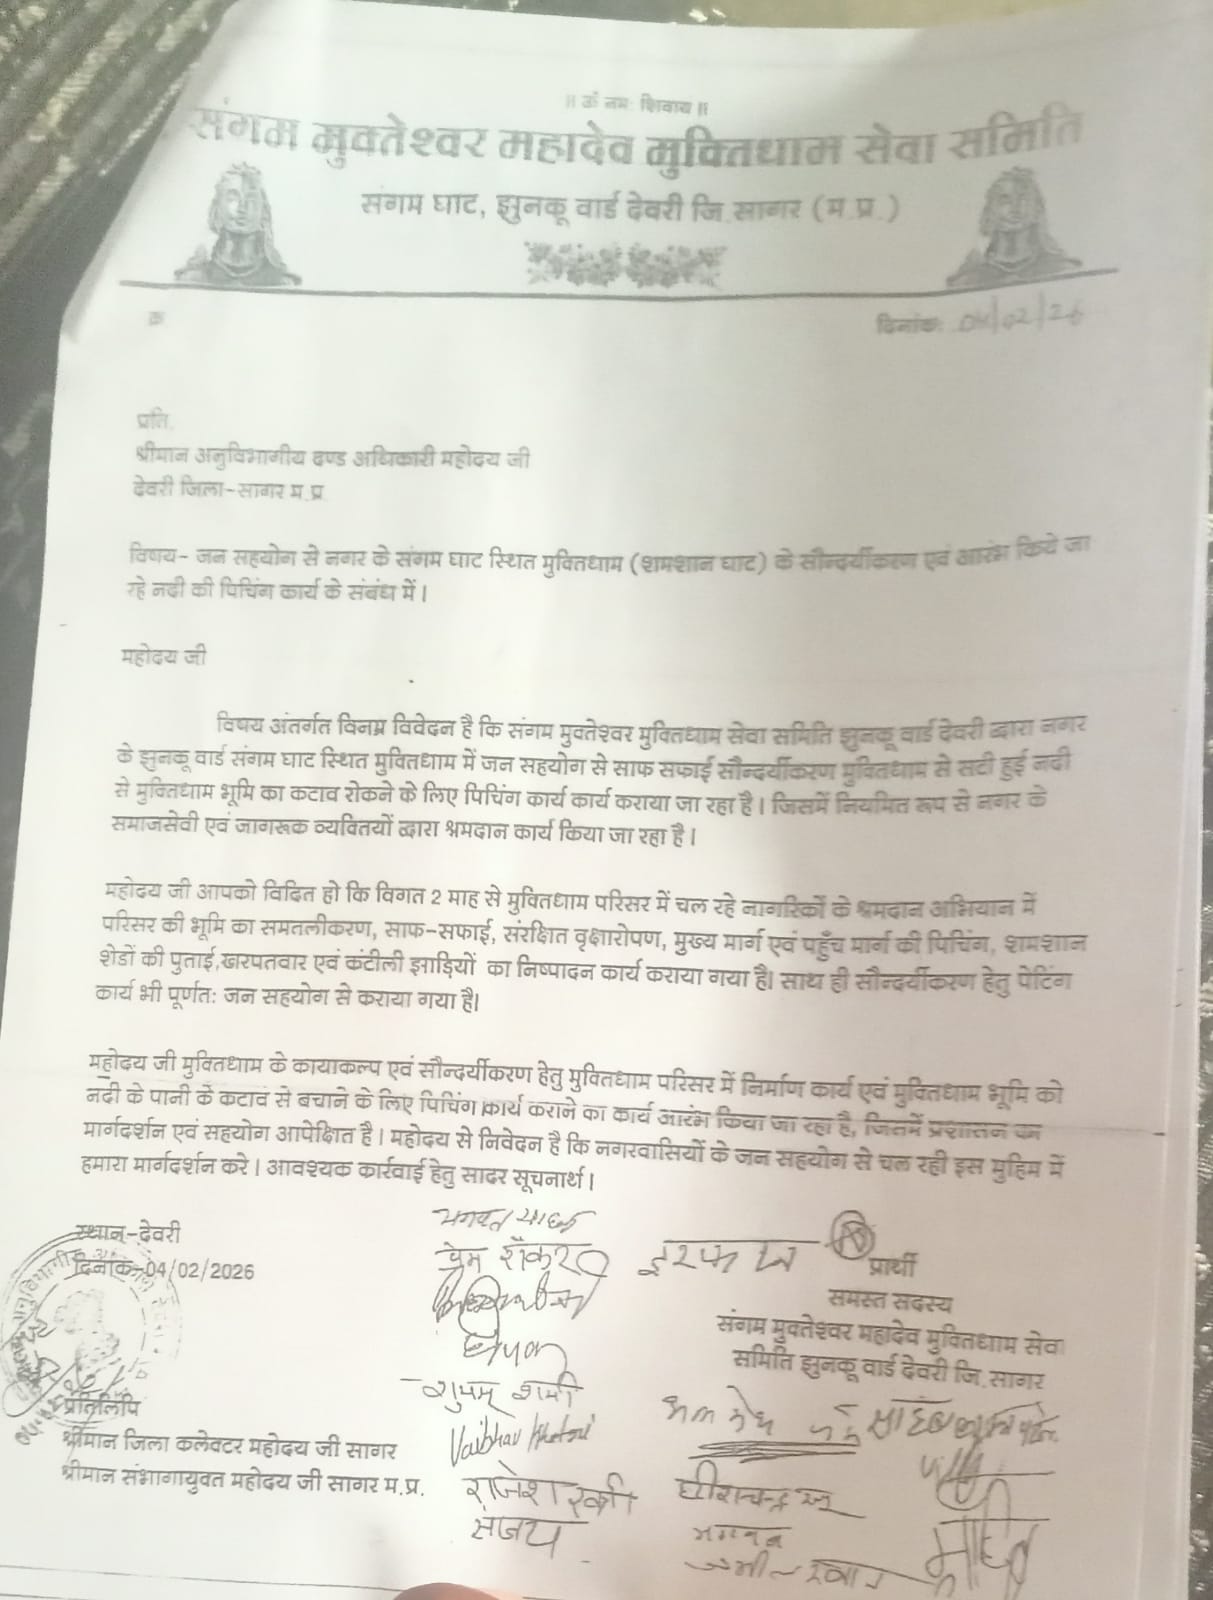 ॥ ॐ नमः शिवाय ॥
संगम मुक्तेश्वर महादेव मुक्तिधाम सेवा समिति
संगम घाट, झुनकू वार्ड देवरी जि.सागर (म.प्र.)
क्र
दिनांक: 04/02/26
प्रति,
श्रीमान अनुविभागीय दण्ड अधिकारी महोदय जी
देवरी जिला-सागर म.प्र.
विषय- जन सहयोग से नगर के संगम घाट स्थित मुक्तिधाम (शमशान घाट) के सौन्दर्यीकरण एवं आरंभ किये जा
रहे नदी की पिचिंग कार्य के संबंध में।
महोदय जी
विषय अंतर्गत विनम्र विवेदन है कि संगम मुक्तेश्वर मुक्तिधाम सेवा समिति झुनकू वार्ड देवरी द्वारा नगर
के झुनकू वार्ड संगम घाट स्थित मुक्तिधाम में जन सहयोग से साफ सफाई सौन्दर्यीकरण मुक्तिधाम से सटी हुई नदी
से मुक्तिधाम भूमि का कटाव रोकने के लिए पिचिंग कार्य कार्य कराया जा रहा है। जिसमें नियमित रूप से नगर के
समाजसेवी एवं जागरूक व्यक्तियों द्वारा श्रमदान कार्य किया जा रहा है।
महोदय जी आपको विदित हो कि विगत 2 माह से मुक्तिधाम परिसर में चल रहे नागरिकों के श्रमदान अभियान में
परिसर की भूमि का समतलीकरण, साफ-सफाई, संरक्षित वृक्षारोपण, मुख्य मार्ग एवं पहुँच मार्ग की पिचिंग, शमशान
शेडों की पुताई,खरपतवार एवं कंटीली झाड़ियों का निष्पादन कार्य कराया गया है। साथ ही सौन्दर्यीकरण हेतु पेटिंग
कार्य भी पूर्णतः जन सहयोग से कराया गया है।
महोदय जी मुक्तिधाम के कायाकल्प एवं सौन्दर्यीकरण हेतु मुक्तिधाम परिसर में निर्माण कार्य एवं मुक्तिधाम भूमि को
नदी के पानी के कटाव से बचाने के लिए पिचिंग कार्य कराने का कार्य आरंभ किया जा रहा है, जिसमें प्रशासन का
मार्गदर्शन एवं सहयोग आपेक्षित है। महोदय से निवेदन है कि नगरवासियों के जन सहयोग से चल रही इस मुहिम में
हमारा मार्गदर्शन करे। आवश्यक कार्रवाई हेतु सादर सूचनार्थ।
स्थान-देवरी
दिनांक-04/02/2026
प्रेम शंकर
इरफान
प्रार्थी
समस्त सदस्य
संगम मुक्तेश्वर महादेव मुक्तिधाम सेवा
समिति झुनकू वार्ड देवरी जि.सागर
शुभम शर्मा
प्रतिलिपि
श्रीमान जिला कलेक्टर महोदय जी सागर
Vaibhav
श्रीमान संभागायुक्त महोदय जी सागर म.प्र.
राजेश
संजय